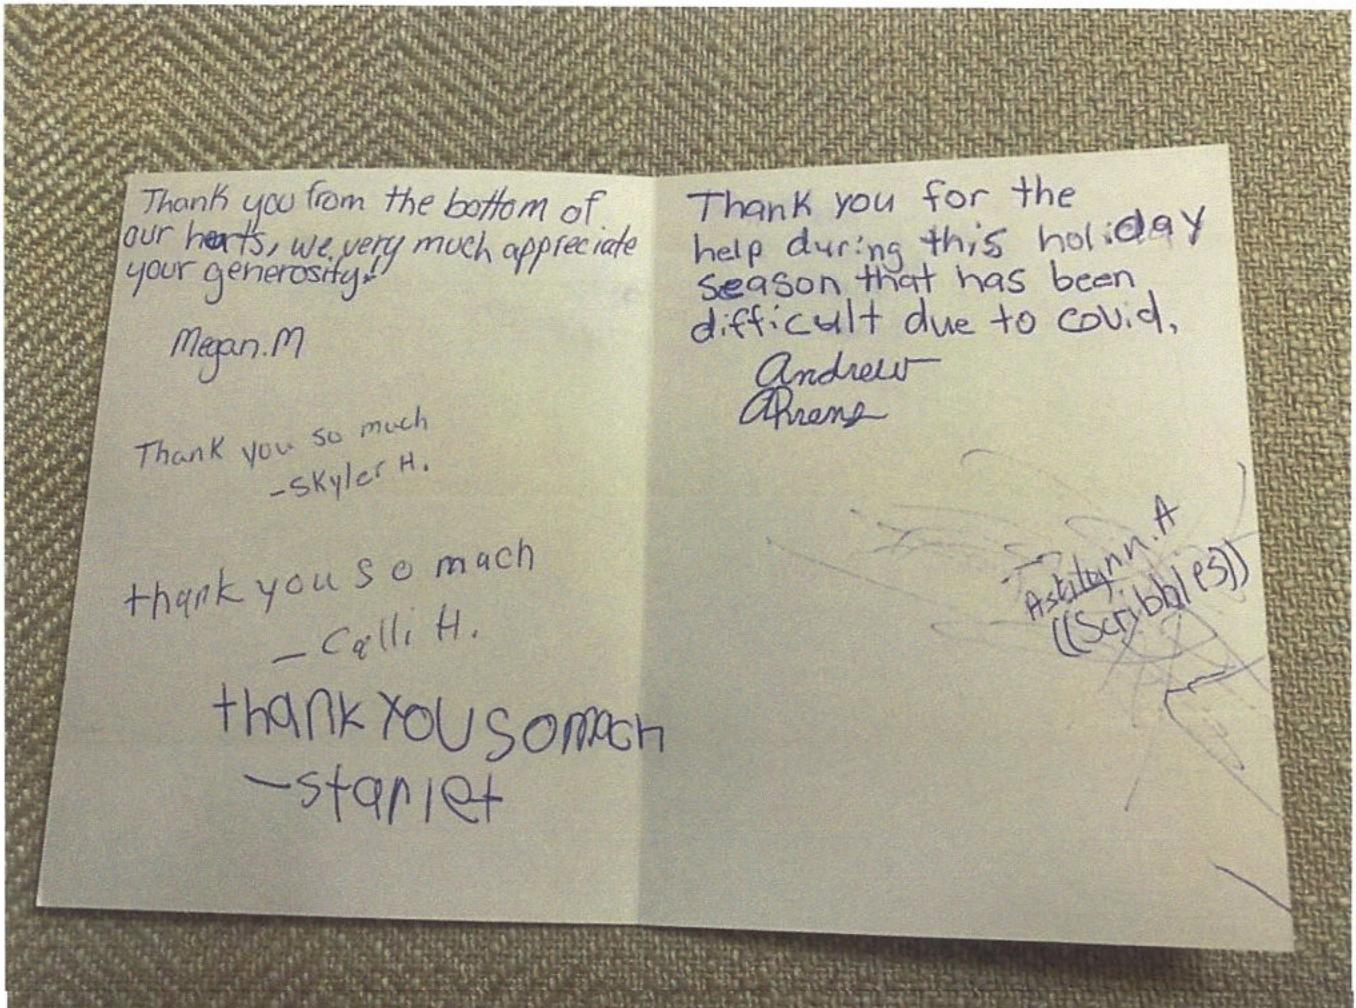 Thank you from the bottom of
our hearts, we very much appreciate
your generosity!
Megan.M
Thank you so much
-Skyler H.
thank you so mach
- Calli H.
thank YOU so mach
-starlet
Thank you for the
help during this holiday
season that has been
difficult due to covid.
Andrew
Ahrens
Ashlynn.A
((Scribbles))